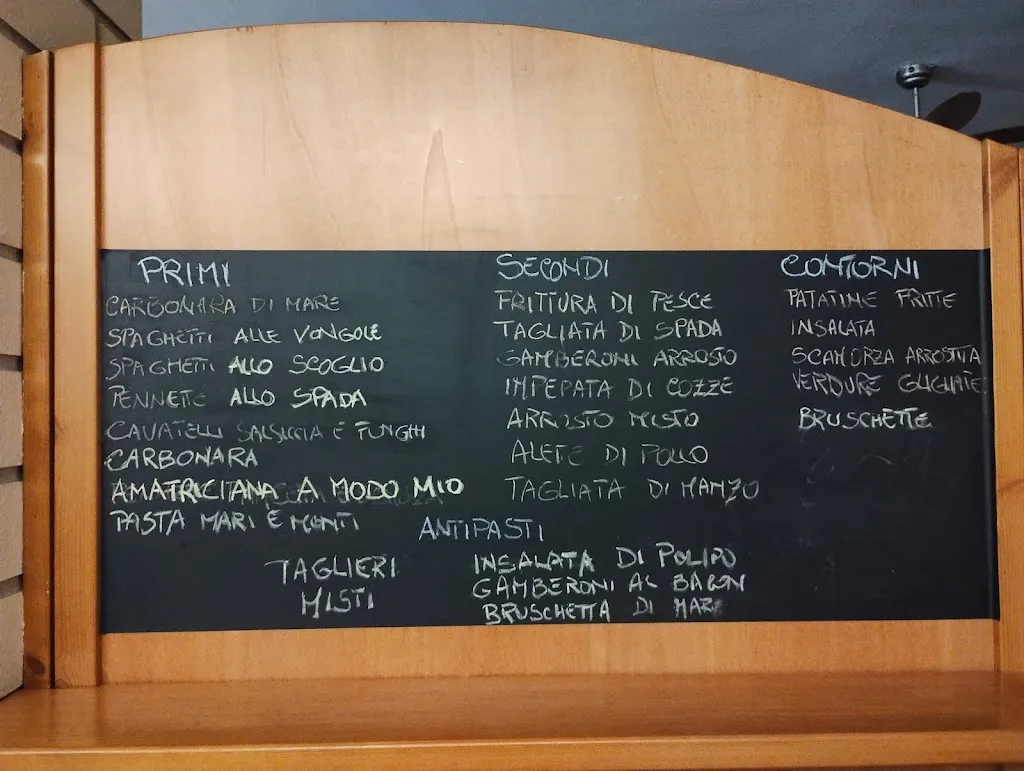 PRIMI
CARBONARA DI MARE
SPAGHETTI ALLE VONGOLE
SPAGHETTI ALLO SCOGLIO
PENNETTE ALLO SPADA
CAVATELLI SALSICCIA E FUNGHI
CARBONARA
AMATRICIANA A MODO MIO
PASTA MARI E MONTI
SECONDI
FRITTURA DI PESCE
TAGLIATA DI SPADA
GAMBERONI ARROSTO
IMPEPATA DI COZZE
ARROSTO MISTO
ALETTE DI POLLO
TAGLIATA DI MANZO
CONTORNI
PATATINE FRITTE
INSALATA
SCAMORZA ARROSTITA
VERDURE GLIGLIATE
BRUSCHETTE
ANTIPASTI
TAGLIERI
MISTI
INSALATA DI POLIPO
GAMBERONI AL BACON
BRUSCHETTA DI MARE